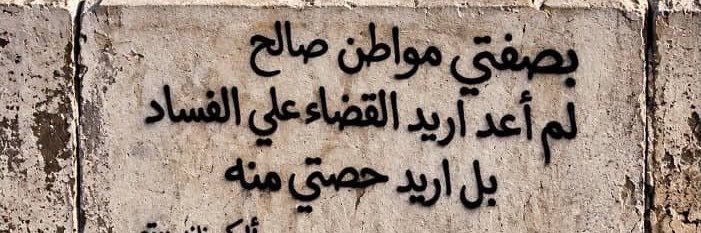 بصفتي مواطن صالح
لم أعد اريد القضاء علي الفساد
بل اريد حصتي منه